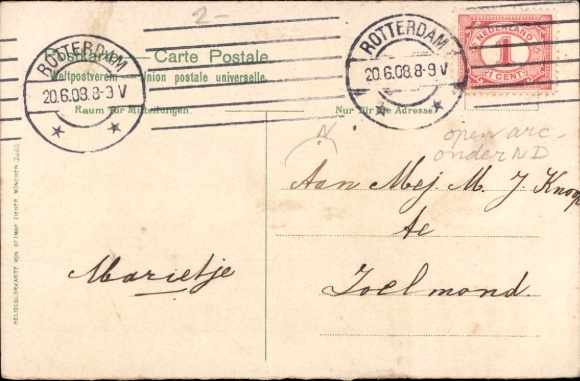 2-
Postkarte — Carte Postale.
Weltpostverein — Union postale universelle.
Raum für Mitteilungen.
Nur für die Adresse
ROTTERDAM
20.6.08.8-9 V
ROTTERDAM
20.6.08.8-9 V
NEDERLAND
1
CENT
N
open arc-
onder ND
Aan Mej. M. J. Knoop
te
Zoelmond.
Marietje
HELIOCOLORKARTE VON OTTMAR ZIEHER, MÜNCHEN